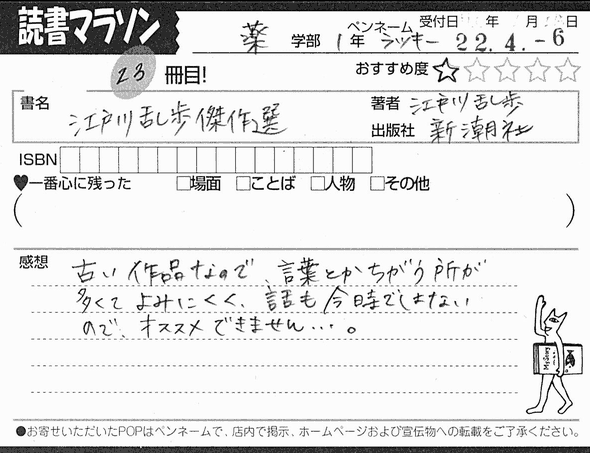 読書マラソン
薬 学部 1年 ペンネーム ラッキー 受付日 年 月 日 22.4.-6
23 冊目! おすすめ度☆☆☆☆☆
書名 江戸川乱歩傑作選 著者 江戸川乱歩
出版社 新潮社
ISBN
♥一番心に残った □場面 □ことば □人物 □その他
( )
感想 古い作品なので、言葉とかちがう所が
多くてよみにくく、話も今時でしはない
ので、オススメできません…。
●お寄せいただいたPOPはペンネームで、店内で掲示、ホームページおよび宣伝物への転載をご了承ください。